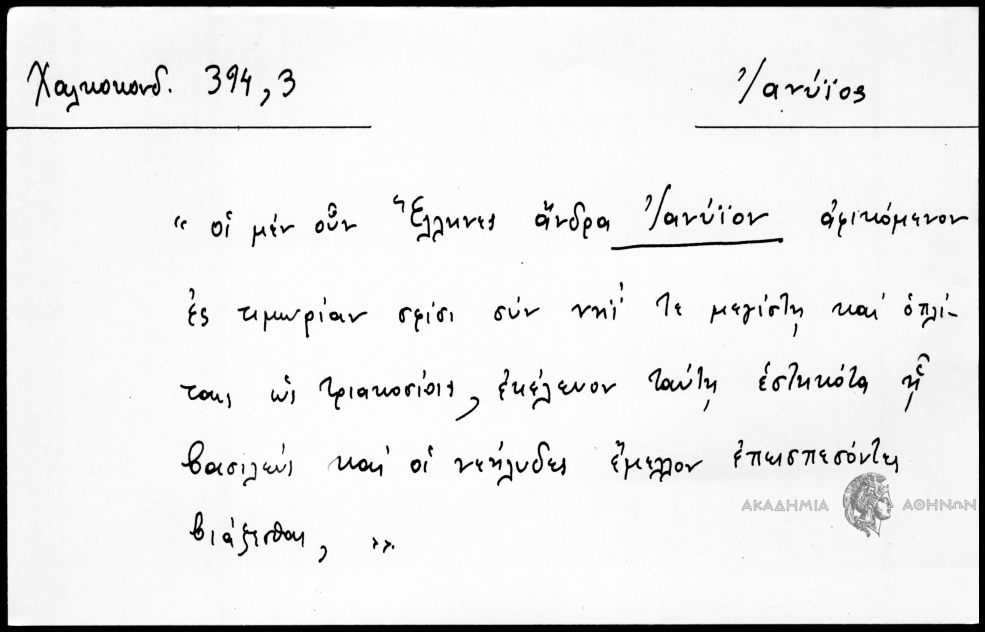 Χαλκοκονδ. 394,3
Ἰανύϊος
" οἱ μέν οὖν Ἕλληνες ἄνδρα Ἰανύϊον ἀφικόμενον
ἐς τιμωρίαν σφίσι σύν νηΐ τε μεγίστῃ καί ὁπλί-
ταις ὡς τριακοσίοις, ἐκέλευον ταύτῃ ἑστηκότα ᾗ
βασιλεύς καί οἱ νεήλυδες ἔμελλον ἐπεισπεσόντες
βιάζεσθαι, ».
ΑΚΑΔΗΜΙΑ ΑΘΗΝΩΝ